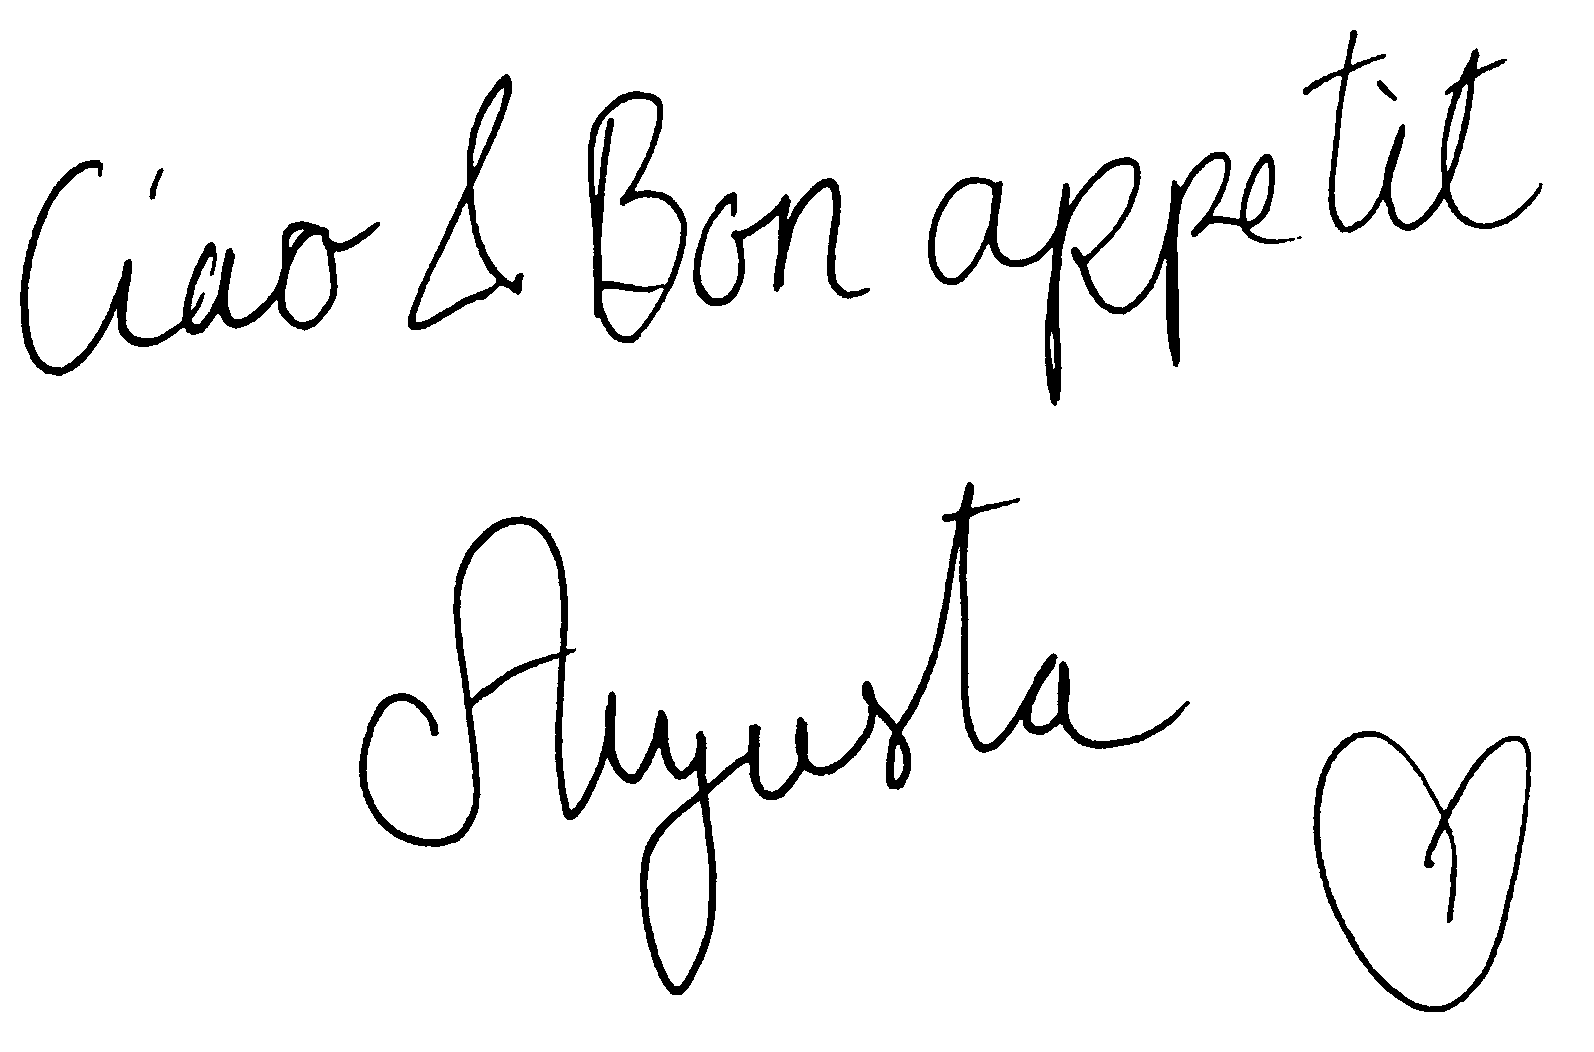 Ciao & Bon appetit
Augusta